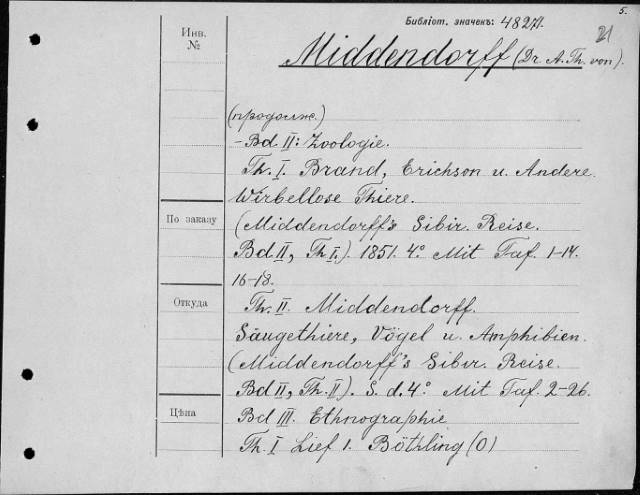 5.
Библіот. значекъ: 4827А.
21
Инв.
№
Middendorff (Dr. A. Th. von).
(продолж.)
- Bd. II: Zoologie.
Th. I. Brand, Erichson u. Andere.
Wirbellose Thiere.
По заказу
(Middendorff's Sibir. Reise.
Bd II, Th I.) 1851. 4° Mit Taf. 1-14.
16-18.
Откуда
Th. II. Middendorff.
Säugethiere, Vögel u. Amphibien.
(Middendorff's Sibir. Reise.
Bd II, Th. II). S. d. 4° Mit Taf. 2-26.
Цѣна
Bd III. Ethnographie
Th. I Lief 1. Bötzling (O)